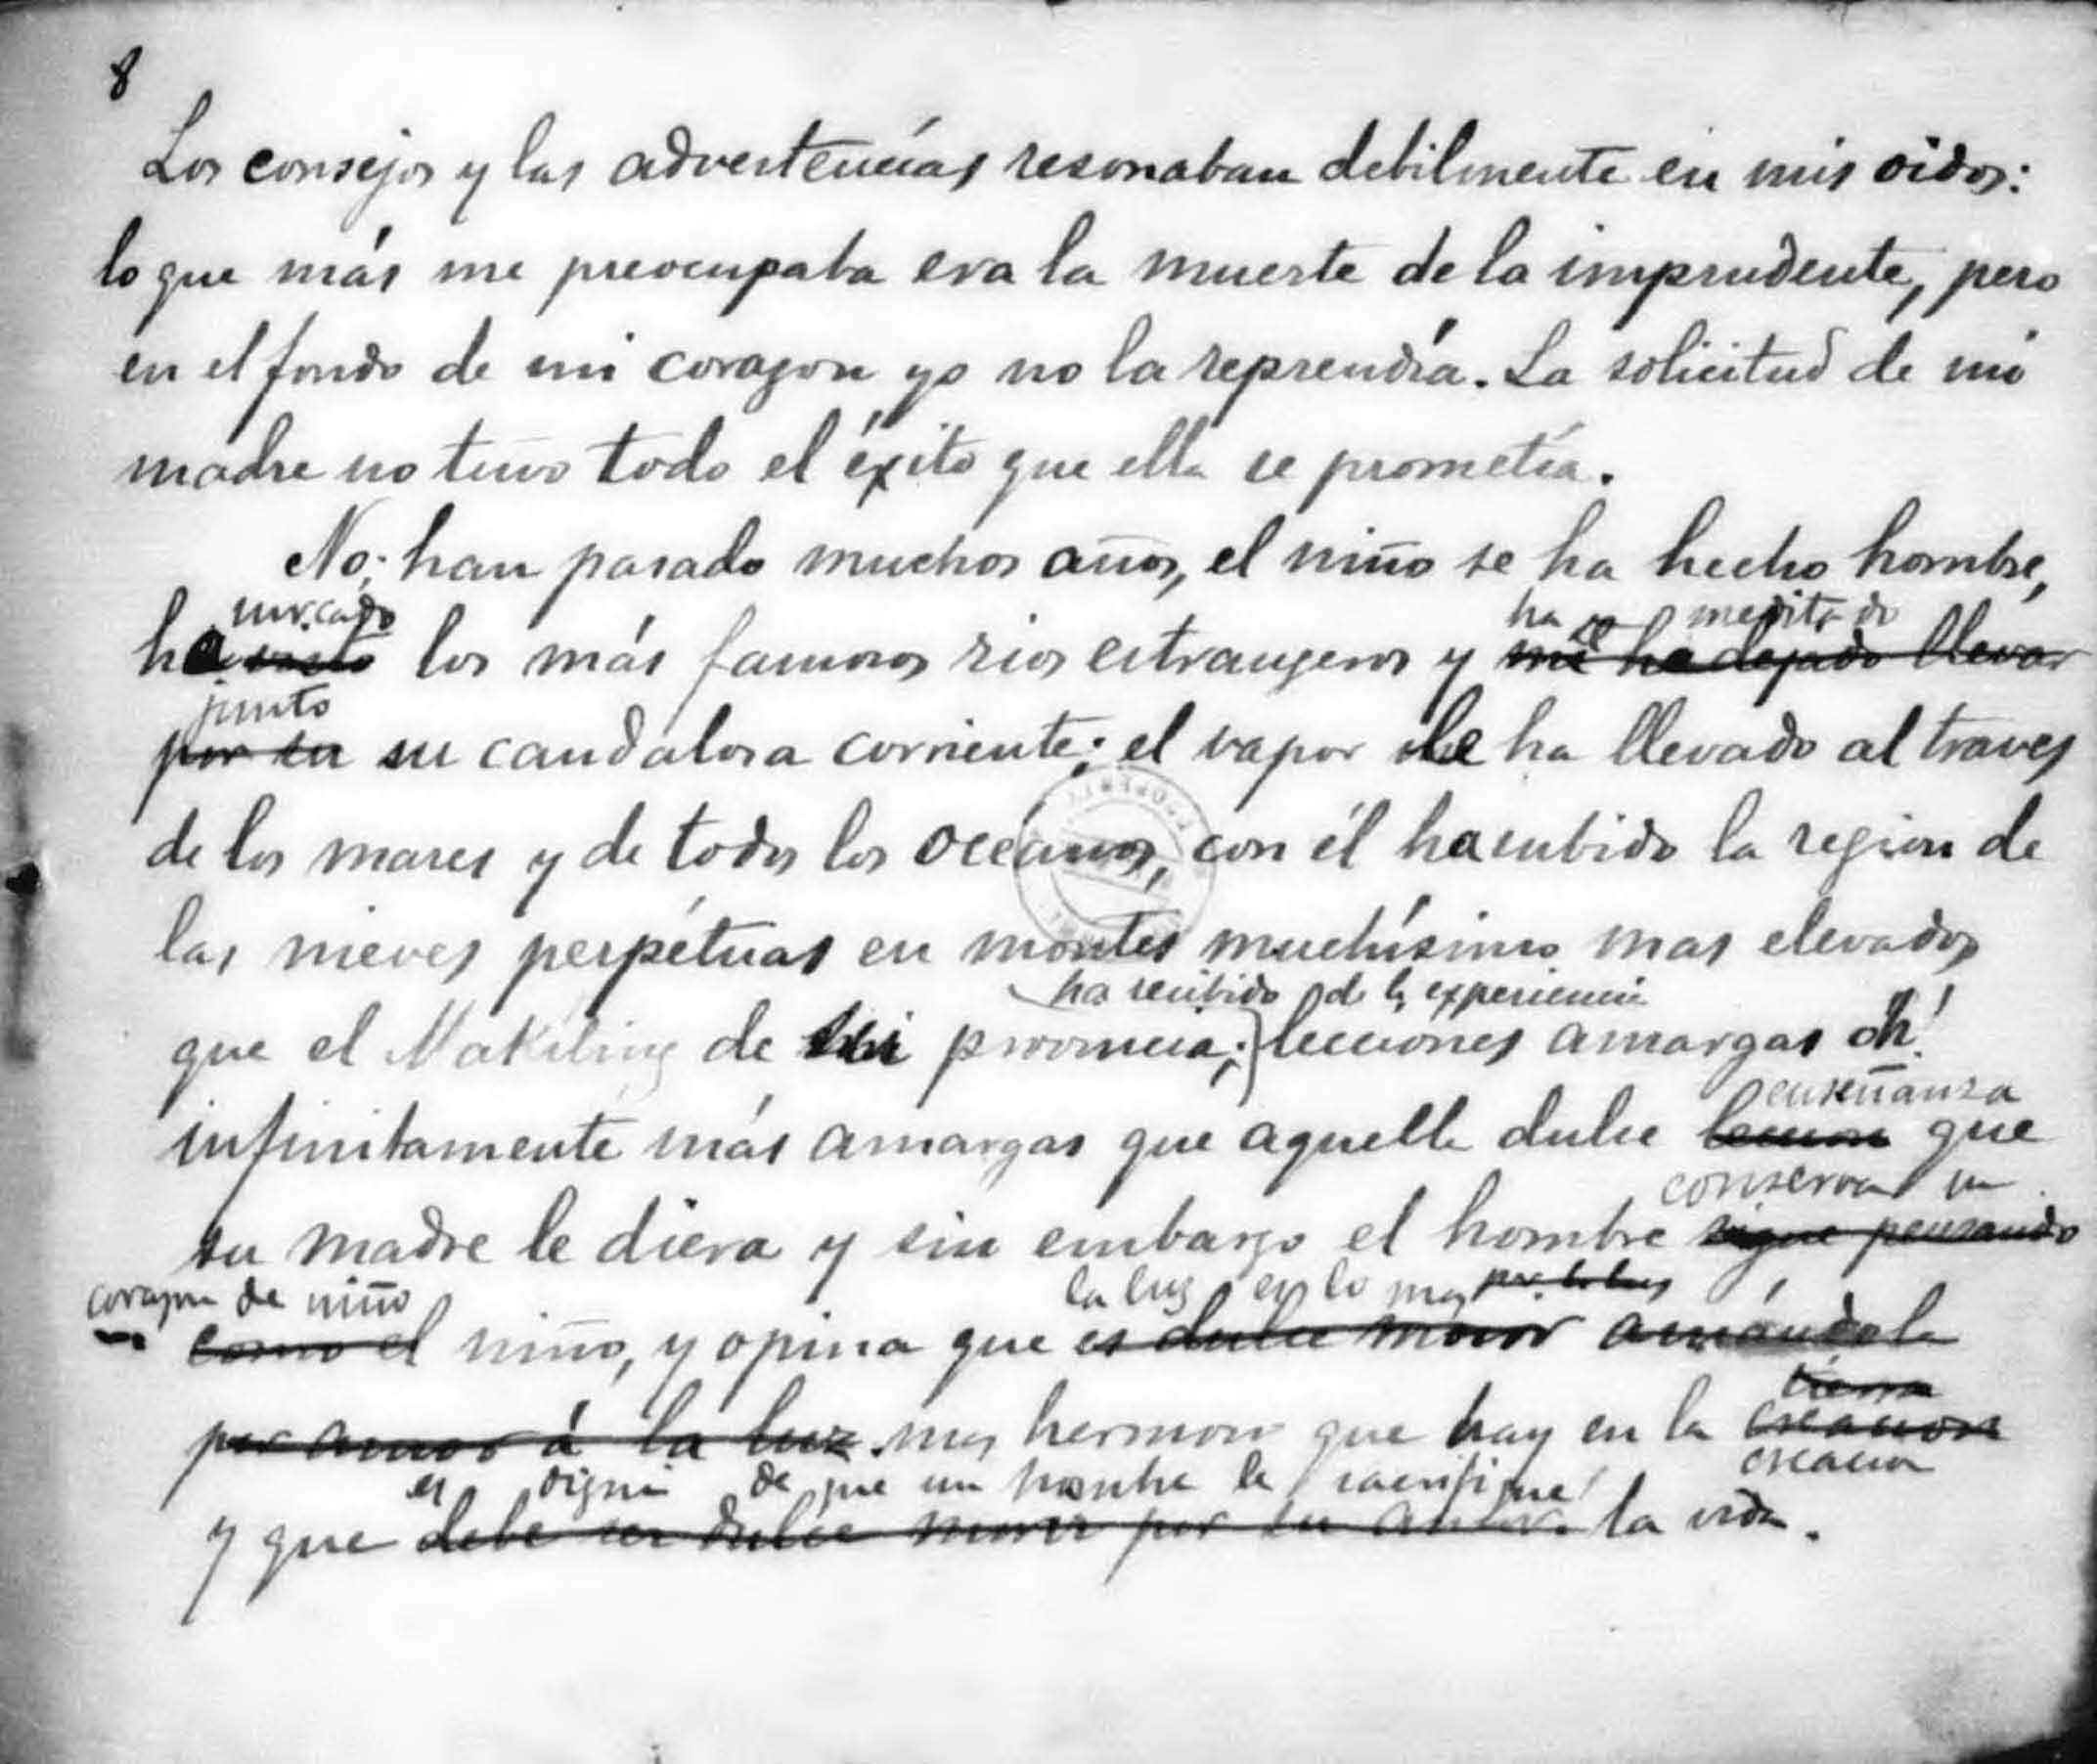 8
Los consejos y las advertencias resonaban debilmente en mis oidos:
lo que más me preocupaba era la muerte de la imprudente, pero
en el fondo de mi corazon yo no la reprendía. La solicitud de mi
madre no tuvo todo el éxito que ella se prometía.
No; han pasado muchos años, el niño se ha hecho hombre,
surcado
ha meditado
ha visto los más famosos rios estrangeros y me he dejado llevar
junto
por su su caudalosa corriente; el vapor le ha llevado al traves
de los mares y de todos los oceános, con él ha subido la region de
las nieves perpétuas en montes muchísimo mas elevados
ha recibido de la experiencia
que el Makiling de su provincia; lecciones amargas oh!
enseñanza
infinitamente más amargas que aquella dulce leccion que
conserva un
su madre le diera y sin embargo el hombre sigue pensando
corazon de niño
la luz es lo mas por la luz
como el niño, y opina que es dulce morir amándola
tierra
por amor á la luz mas hermoso que hay en la creacion
creacion
es digna de que un hombre le sacrifique
y que debe ser dulce morir por su amor. la vida.